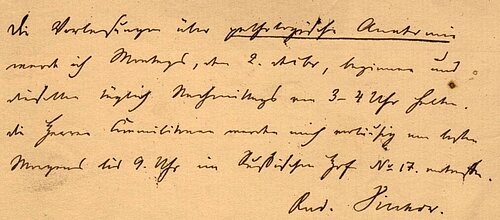 Die Vorlesungen über pathologische Anatomie
werde ich Montags, den 2. beginnen und
dieselben täglich Nachmittags von 3-4 Uhr halten.
Die Herren Commilitonen werden mich vorläufig am besten
Morgens bis 9. Uhr im Russischen Hof No 17. antreffen.
Rud. Virchow.